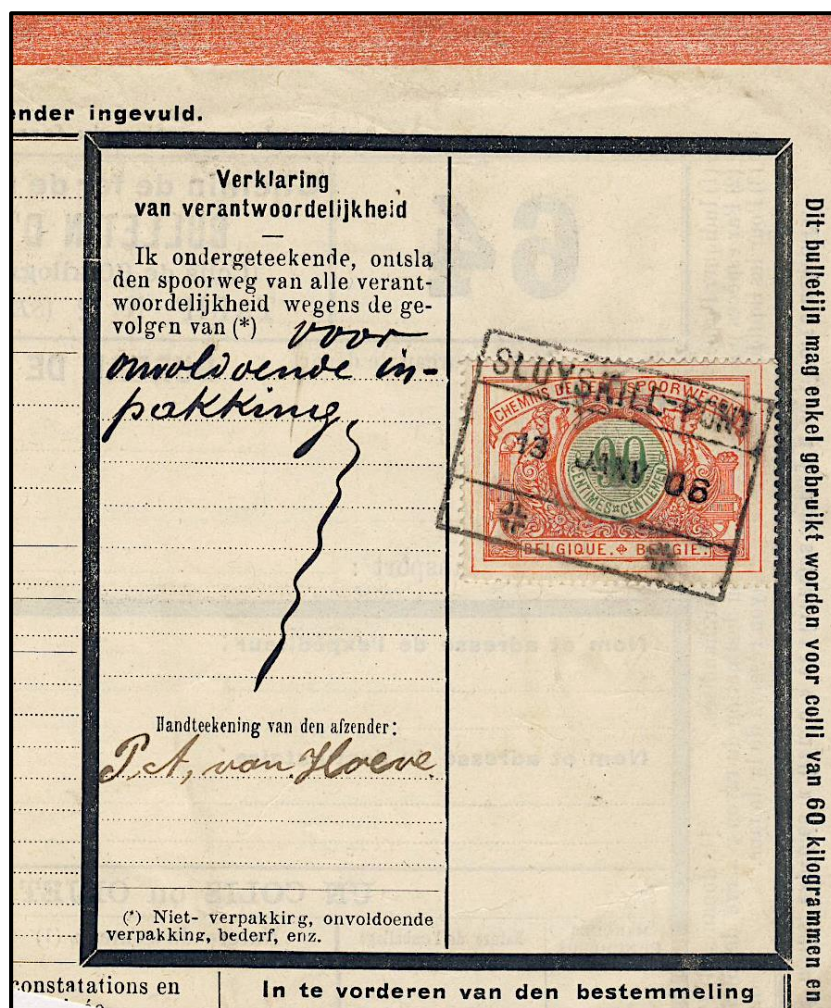 ender ingevuld.
Verklaring
van verantwoordelijkheid
Ik ondergeteekende, ontsla
den spoorweg van alle verant-
woordelijkheid wegens de ge-
volgen van (*) voor
onvoldoende in-
pakking
Handteekening van den afzender:
P. A, van Hoeve.
(*) Niet- verpakkirg, onvoldoende
verpakking, bederf, enz.
SLUYSKILL-PONT
13 JANV 06
CHEMINS DE FER SPOORWEGEN
90
CENTIMES CENTIEMEN
BELGIQUE. BELGIE.
Dit bulletijn mag enkel gebruikt worden voor colli van 60 kilogrammen en
constatations en
In te vorderen van den bestemmeling